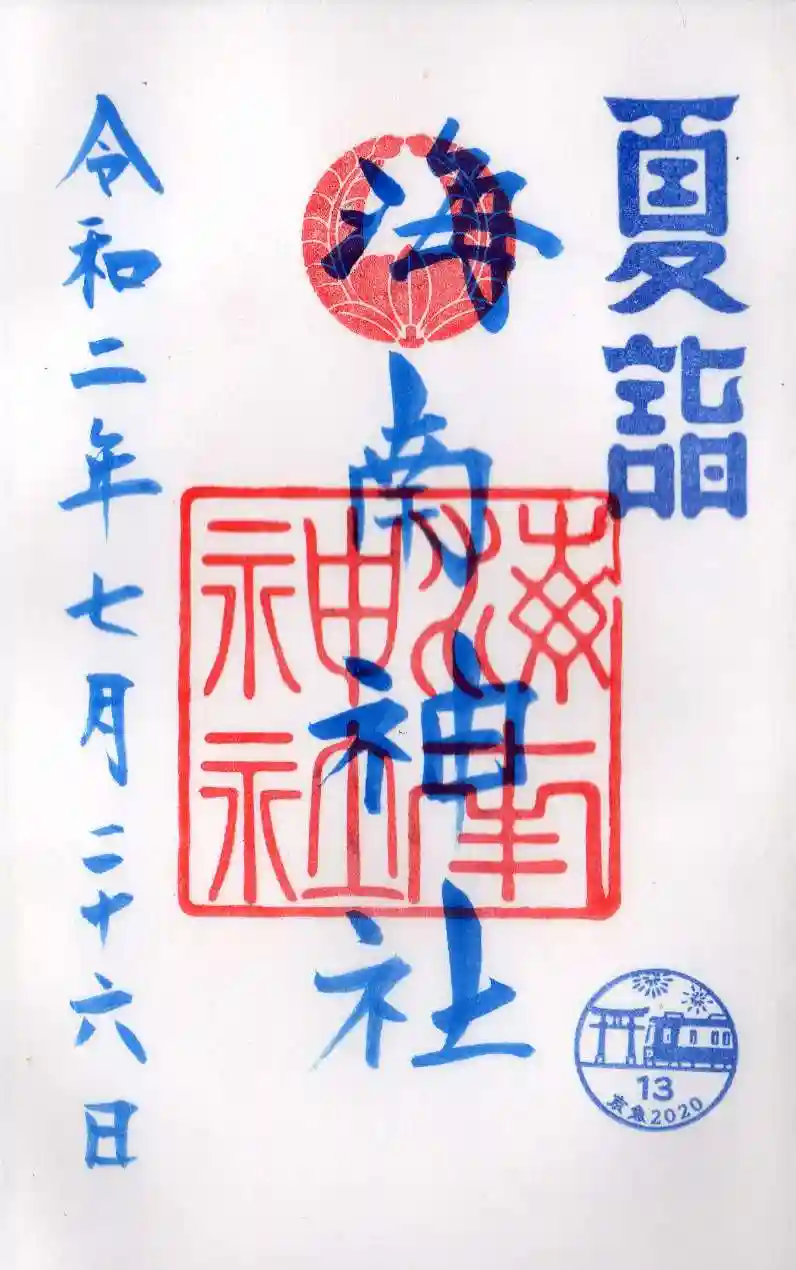 夏詣
海南神社
海南神社
令和二年七月二十六日
13
京急2020